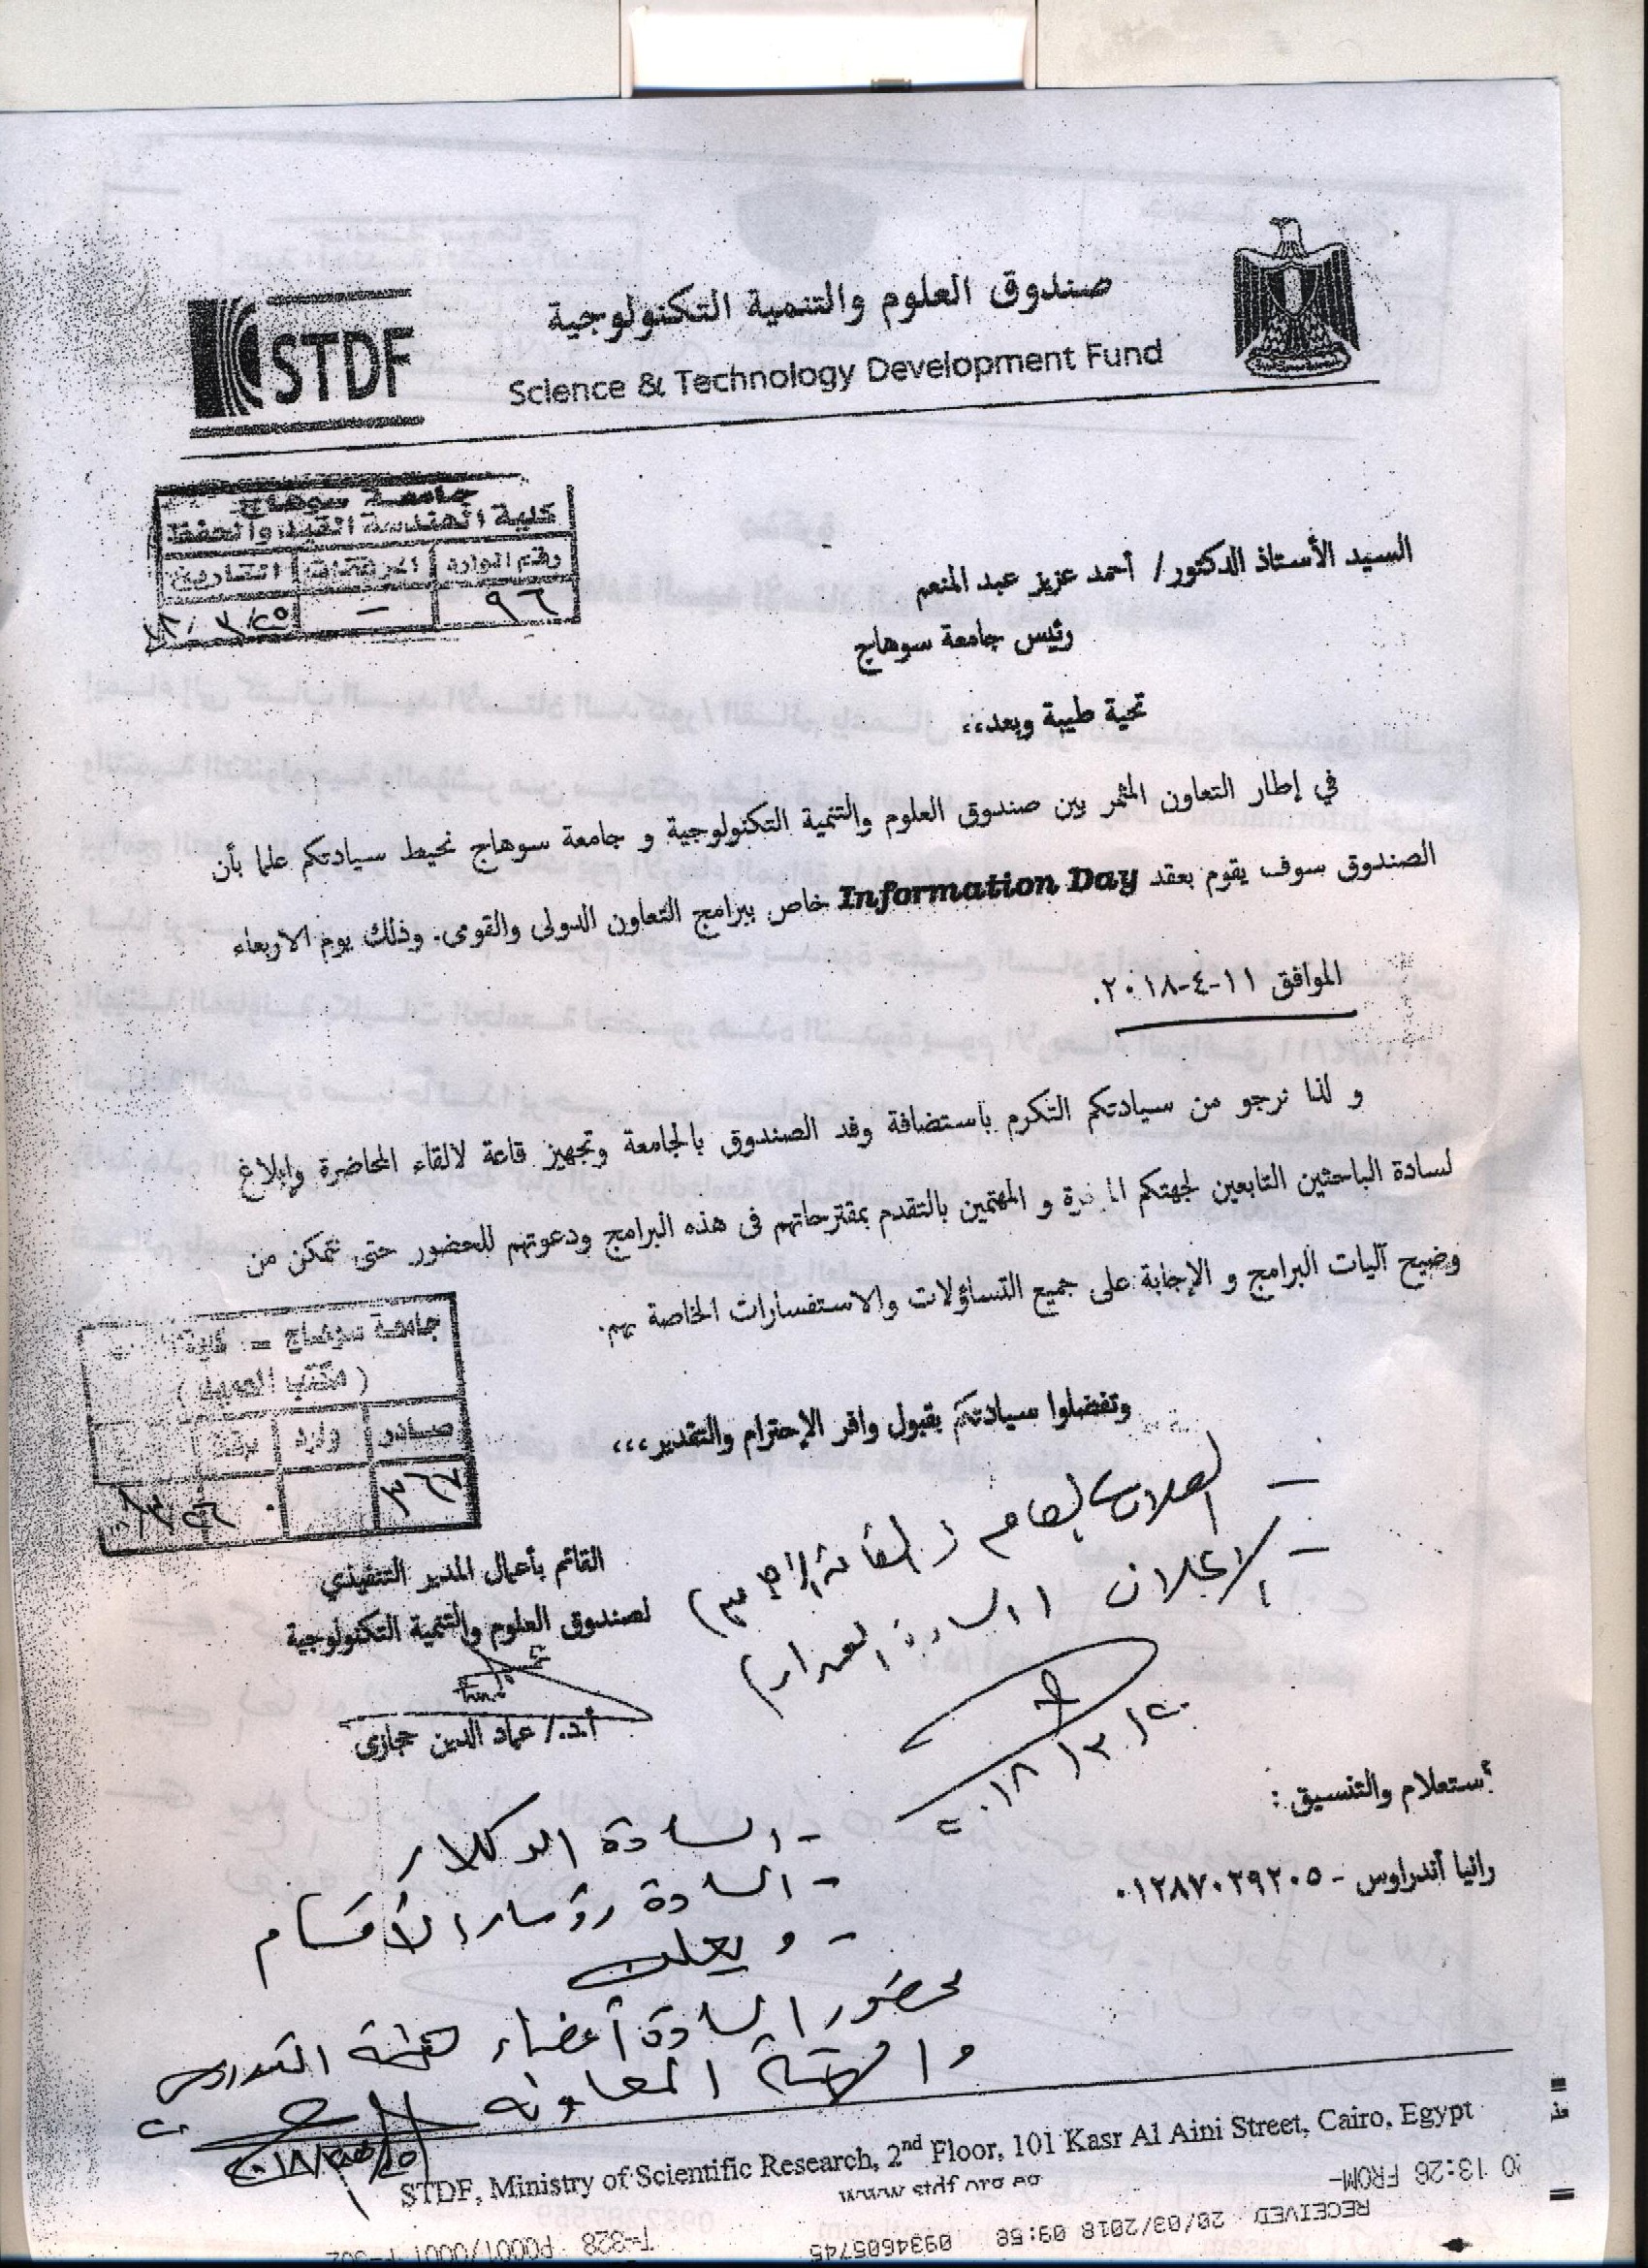 صندوق العلوم والتنمية التكنولوجية
Science & Technology Development Fund
STDF
جامعة سوهاج
كلية الهندسة القيد والحفظ
رقم الوارد المرفقات التاريخ
٩٦ - ٣/٢٥
السيد الأستاذ الدكتور/ أحمد عزيز عبد المنعم
رئيس جامعة سوهاج
تحية طيبة وبعد،،
في إطار التعاون المثمر بين صندوق العلوم والتنمية التكنولوجية و جامعة سوهاج نحيط سيادتكم علما بأن
الصندوق سوف يقوم بعقد Information Day خاص ببرامج التعاون الدولى والقومى. وذلك يوم الاربعاء
الموافق ١١-٤-٢٠١٨.
و لذا نرجو من سيادتكم التكرم باستضافة وفد الصندوق بالجامعة وتجهيز قاعة لالقاء المحاضرة وإبلاغ
لسادة الباحثين التابعين لجهتكم و المهتمين بالتقدم بمقترحاتهم فى هذه البرامج ودعوتهم للحضور حتى نتمكن من
وضيح آليات البرامج و الإجابة على جميع التساؤلات والاستفسارات الخاصة بهم.
وتفضلوا سيادتكم بقبول وافر الإحترام والتقدير،،،
جامعة سوهاج -
(مكتب العميد)
صادر وارد
٣٦٧
القائم بأعمال المدير التنفيذي
لصندوق العلوم والتنمية التكنولوجية
أ.د./ عماد الدين حجازى
- الإعلان (السادة العمداء)
٢٠١٨/٣/٢٠
أستعلام والتنسيق :
رانيا أندراوس - ٠١٢٨٧٠٢٩٢٠٥
- السادة الوكلاء
- السادة رؤساء الأقسام
- ويعلن
بحضور السادة أعضاء هيئة التدريس
والهيئة المعاونة
STDF, Ministry of Scientific Research, 2nd Floor, 101 Kasr Al Aini Street, Cairo, Egypt
www.stdf.org.eg
13:26 FROM-
RECEIVED 20/03/2018 09:58 0934605745
T-328 P0001/0001 F-302